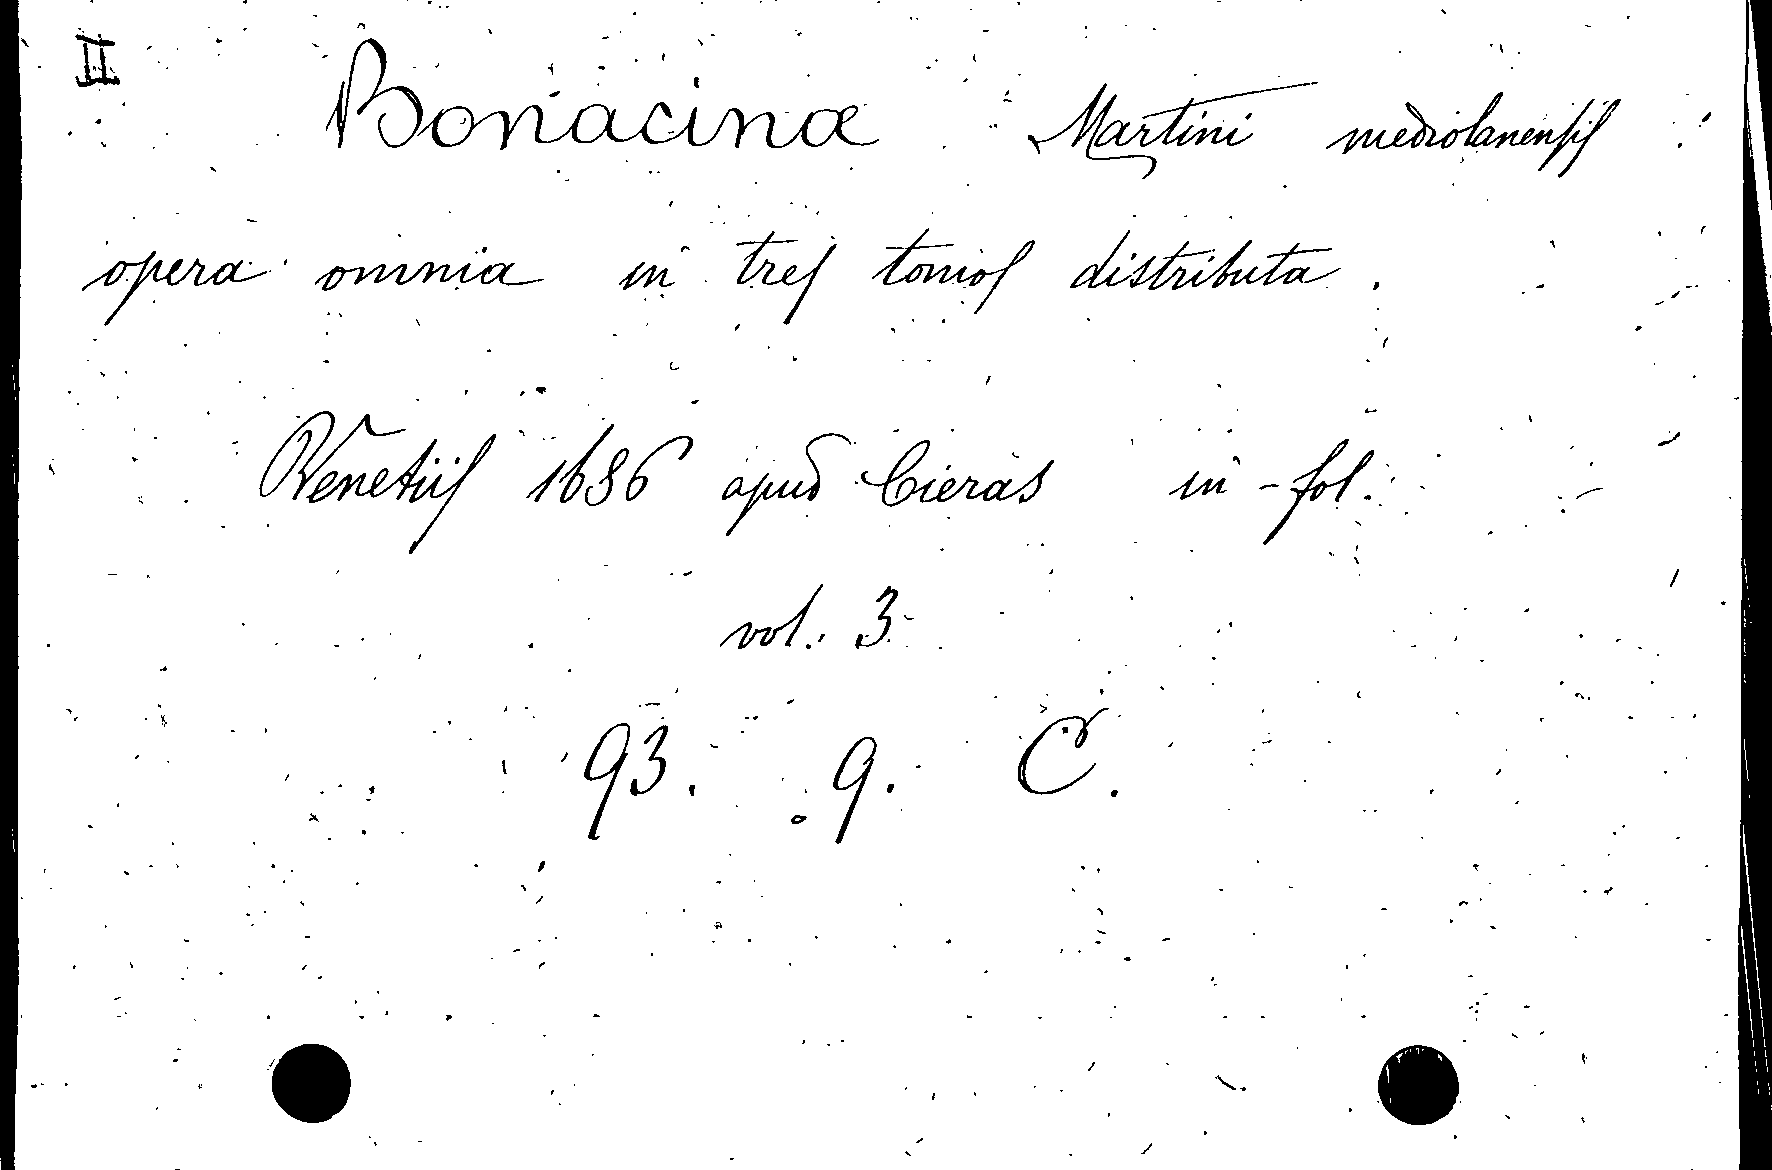 II
Bonacinæ Martini mediolanensis
opera omnia in tres tomos distributa.
Venetiis 1686 apud Cieras in-fol.
vol. 3
93. 9. C.